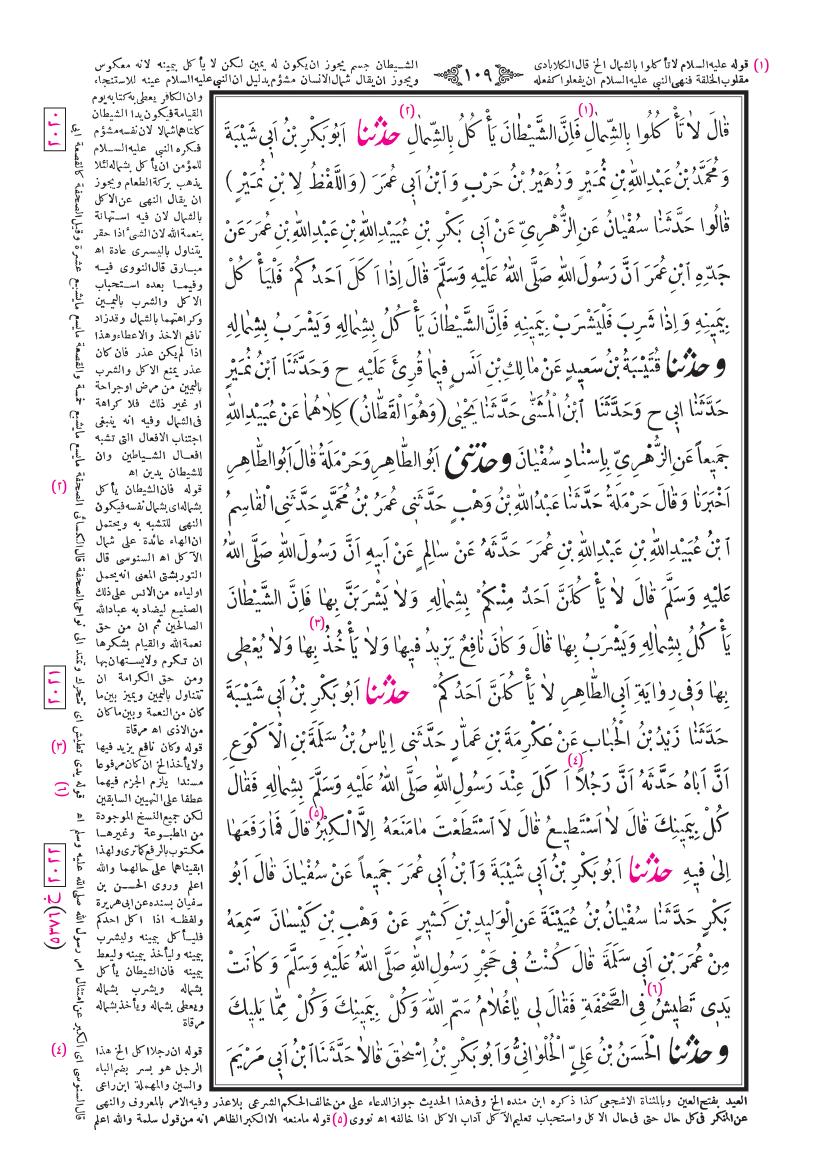 (١) قوله عليه السلام لا تأكلوا بالشمال الخ قال الكلابادى
مقلوب الخلقة فنهى النبي عليه السلام ان يفعلوا كفعله
﴿١٠٩﴾
الشيطان جسم يجوز ان يكون له يمين لكن لا يأكل بيمينه لانه معكوس
ويجوز ان يقال شمال الانسان مشؤم بدليل ان النبي عليه السلام عينه للاستنجاء
قَالَ لَا تَأْكُلُوا بِالشِّمَالِ (١) فَإِنَّ الشَّيْطَانَ يَأْكُلُ بِالشِّمَالِ (٢) حَدَّثَنَا اَبُو بَكْرِ بْنُ اَبِي شَيْبَةَ
وَمُحَمَّدُ بْنُ عَبْدِ اللهِ بْنِ نُمَيْرٍ وَزُهَيْرُ بْنُ حَرْبٍ وَابْنُ اَبِي عُمَرَ (وَاللَّفْظُ لِابْنِ نُمَيْرٍ)
قَالُوا حَدَّثَنَا سُفْيَانُ عَنِ الزُّهْرِيِّ عَنْ اَبِي بَكْرِ بْنِ عُبَيْدِ اللهِ بْنِ عَبْدِ اللهِ بْنِ عُمَرَ عَنْ
جَدِّهِ ابْنِ عُمَرَ اَنَّ رَسُولَ اللهِ صَلَّى اللهُ عَلَيْهِ وَسَلَّمَ قَالَ اِذَا اَكَلَ اَحَدُكُمْ فَلْيَأْكُلْ
بِيَمِينِهِ وَاِذَا شَرِبَ فَلْيَشْرَبْ بِيَمِينِهِ فَاِنَّ الشَّيْطَانَ يَأْكُلُ بِشِمَالِهِ وَيَشْرَبُ بِشِمَالِهِ
وحَدَّثَنَا قُتَيْبَةُ بْنُ سَعِيدٍ عَنْ مَالِكِ بْنِ اَنَسٍ فِيمَا قُرِئَ عَلَيْهِ ح وَحَدَّثَنَا ابْنُ نُمَيْرٍ
حَدَّثَنَا اَبِي ح وَحَدَّثَنَا ابْنُ الْمُثَنَّى حَدَّثَنَا يَحْيَى (وَهُوَ الْقَطَّانُ) كِلَاهُمَا عَنْ عُبَيْدِ اللهِ
جَمِيعاً عَنِ الزُّهْرِيِّ بِاِسْنَادِ سُفْيَانَ وحَدَّثَنِي اَبُو الطَّاهِرِ وَحَرْمَلَةُ قَالَ اَبُو الطَّاهِرِ
اَخْبَرَنَا وَقَالَ حَرْمَلَةُ حَدَّثَنَا عَبْدُ اللهِ بْنُ وَهْبٍ حَدَّثَنِي عُمَرُ بْنُ مُحَمَّدٍ حَدَّثَنِي الْقَاسِمُ
ابْنُ عُبَيْدِ اللهِ بْنِ عَبْدِ اللهِ بْنِ عُمَرَ حَدَّثَهُ عَنْ سَالِمٍ عَنْ اَبِيهِ اَنَّ رَسُولَ اللهِ صَلَّى اللهُ
عَلَيْهِ وَسَلَّمَ قَالَ لَا يَأْكُلَنَّ اَحَدٌ مِنْكُمْ بِشِمَالِهِ وَلَا يَشْرَبَنَّ بِهَا فَاِنَّ الشَّيْطَانَ
يَأْكُلُ بِشِمَالِهِ وَيَشْرَبُ بِهَا قَالَ وَكَانَ نَافِعٌ (٣) يَزِيدُ فِيهَا وَلَا يَأْخُذُ بِهَا وَلَا يُعْطِي
بِهَا وَفِي رِوَايَةِ اَبِي الطَّاهِرِ لَا يَأْكُلَنَّ اَحَدُكُمْ حَدَّثَنَا اَبُو بَكْرِ بْنُ اَبِي شَيْبَةَ
حَدَّثَنَا زَيْدُ بْنُ الْحُبَابِ عَنْ عِكْرِمَةَ بْنِ عَمَّارٍ حَدَّثَنِي اِيَاسُ بْنُ سَلَمَةَ بْنِ الْاَكْوَعِ
اَنَّ اَبَاهُ حَدَّثَهُ اَنَّ رَجُلًا (٤) اَكَلَ عِنْدَ رَسُولِ اللهِ صَلَّى اللهُ عَلَيْهِ وَسَلَّمَ بِشِمَالِهِ فَقَالَ
كُلْ بِيَمِينِكَ قَالَ لَا اَسْتَطِيعُ قَالَ لَا اسْتَطَعْتَ مَا مَنَعَهُ اِلَّا الْكِبْرُ (٥) قَالَ فَمَا رَفَعَهَا
اِلَى فِيهِ حَدَّثَنَا اَبُو بَكْرِ بْنُ اَبِي شَيْبَةَ وَابْنُ اَبِي عُمَرَ جَمِيعاً عَنْ سُفْيَانَ قَالَ اَبُو
بَكْرٍ حَدَّثَنَا سُفْيَانُ بْنُ عُيَيْنَةَ عَنِ الْوَلِيدِ بْنِ كَثِيرٍ عَنْ وَهْبِ بْنِ كَيْسَانَ سَمِعَهُ
مِنْ عُمَرَ بْنِ اَبِي سَلَمَةَ قَالَ كُنْتُ فِي حَجْرِ رَسُولِ اللهِ صَلَّى اللهُ عَلَيْهِ وَسَلَّمَ وَكَانَتْ
يَدِي تَطِيشُ (٦) فِي الصَّحْفَةِ فَقَالَ لِي يَا غُلَامُ سَمِّ اللهَ وَكُلْ بِيَمِينِكَ وَكُلْ مِمَّا يَلِيكَ
وحَدَّثَنَا الْحَسَنُ بْنُ عَلِيٍّ الْحُلْوَانِيُّ وَاَبُو بَكْرِ بْنُ اِسْحٰقَ قَالَا حَدَّثَنَا ابْنُ اَبِي مَرْيَمَ
وان الكافر يعطى به كتابه يوم
القيامة فيكون يدا الشيطان
كلتاهما شمالا لان نفسه مشؤم
فكره النبي عليه السلام
للمؤمن ان يأكل بشماله لئلا
يذهب بركة الطعام ويجوز
ان يقال النهى عن الاكل
بالشمال لان فيه استهانة
بنعمة الله لان الشئ اذا حقر
يتناول باليسرى عادة اه
مبارق قال النووى فيه
وفيما بعده استحباب
الاكل والشرب باليمين
وكراهتهما بالشمال وقد زاد
نافع الاخذ والاعطاء وهذا
اذا لم يكن عذر فان كان
عذر يمنع الاكل والشرب
باليمين من مرض او جراحة
او غير ذلك فلا كراهة
فى الشمال وفيه انه ينبغى
اجتناب الافعال التى تشبه
افعال الشياطين وان
للشيطان يدين اه
(٢) قوله فان الشيطان يأكل
بشماله اى بشمال نفسه فيكون
النهى للتشبه به ويحتمل
ان الهاء عائدة على شمال
الآكل اه السنوسى قال
التوربشتى المعنى انه يحمل
اولياءه من الانس على ذلك
الصنيع ليضاد به عباد الله
الصالحين ثم ان من حق
نعمة الله والقيام بشكرها
ان تكرم ولا يستهان بها
ومن حق الكرامة ان
تتناول باليمين ويميز بين ما
كان من النعمة وبين ما كان
من الاذى اه مرقاة
(٣) قوله وكان نافع يزيد فيها
ولا يأخذ الخ ان كان مرفوعا
مسندا يلزم الجزم فيهما
عطفا على النهيين السابقين
لكن جميع النسخ الموجودة
من المطبوعة وغيرها
مكتوب بالرفع كما ترى ولهذا
ابقيناهما على حالهما والله
اعلم وروى الحسن بن
سفيان بسنده عن ابى هريرة
ولفظه اذا اكل احدكم
فليأكل بيمينه وليشرب
بيمينه وليأخذ بيمينه وليعط
بيمينه فان الشيطان يأكل
بشماله ويشرب بشماله
ويعطى بشماله ويأخذ بشماله
مرقاة
(٤) قوله ان رجلا اكل الخ هذا
الرجل هو بسر بضم الباء
والسين والمهملة ابن راعى
العيد بفتح العين وبالمثناة الاشجعى كذا ذكره ابن منده الخ وفى هذا الحديث جواز الدعاء على من خالف الحكم الشرعى بلا عذر وفيه الامر بالمعروف والنهى
عن المنكر فى كل حال حتى فى حال الاكل واستحباب تعليم الآكل آداب الاكل اذا خالفه اه نووى (٥) قوله ما منعه الا الكبر الظاهر انه من قول سلمة والله اعلم
(٦) قوله يدى تطيش اى تتحرك وتمتد الى نواحى الصحفة قال الكسائى الصحفة ما يسع ما يشبع خمسة والقصعة ما يسع ما يشبع عشرة وقيل الصحفة كالقصعة اى
قال السنوسى اى الكبر عن امتثال امر رسول الله صلى الله عليه وسلم اه
٢٠٢٠
٢٠٢١
٢٠٢٢